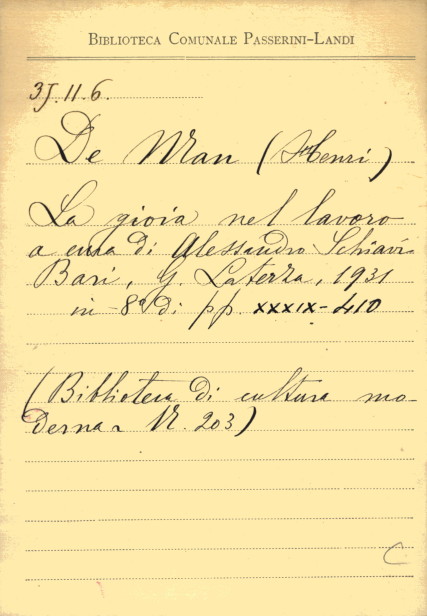 BIBLIOTECA COMUNALE PASSERINI-LANDI
3J.11.6.
De Man (Henri)
La gioia nel lavoro
a cura di Alessandro Schiavi
Bari, G. Laterza, 1931
in 8º di pp. XXXIX-410
(Biblioteca di cultura mo-
derna N. 203)
C